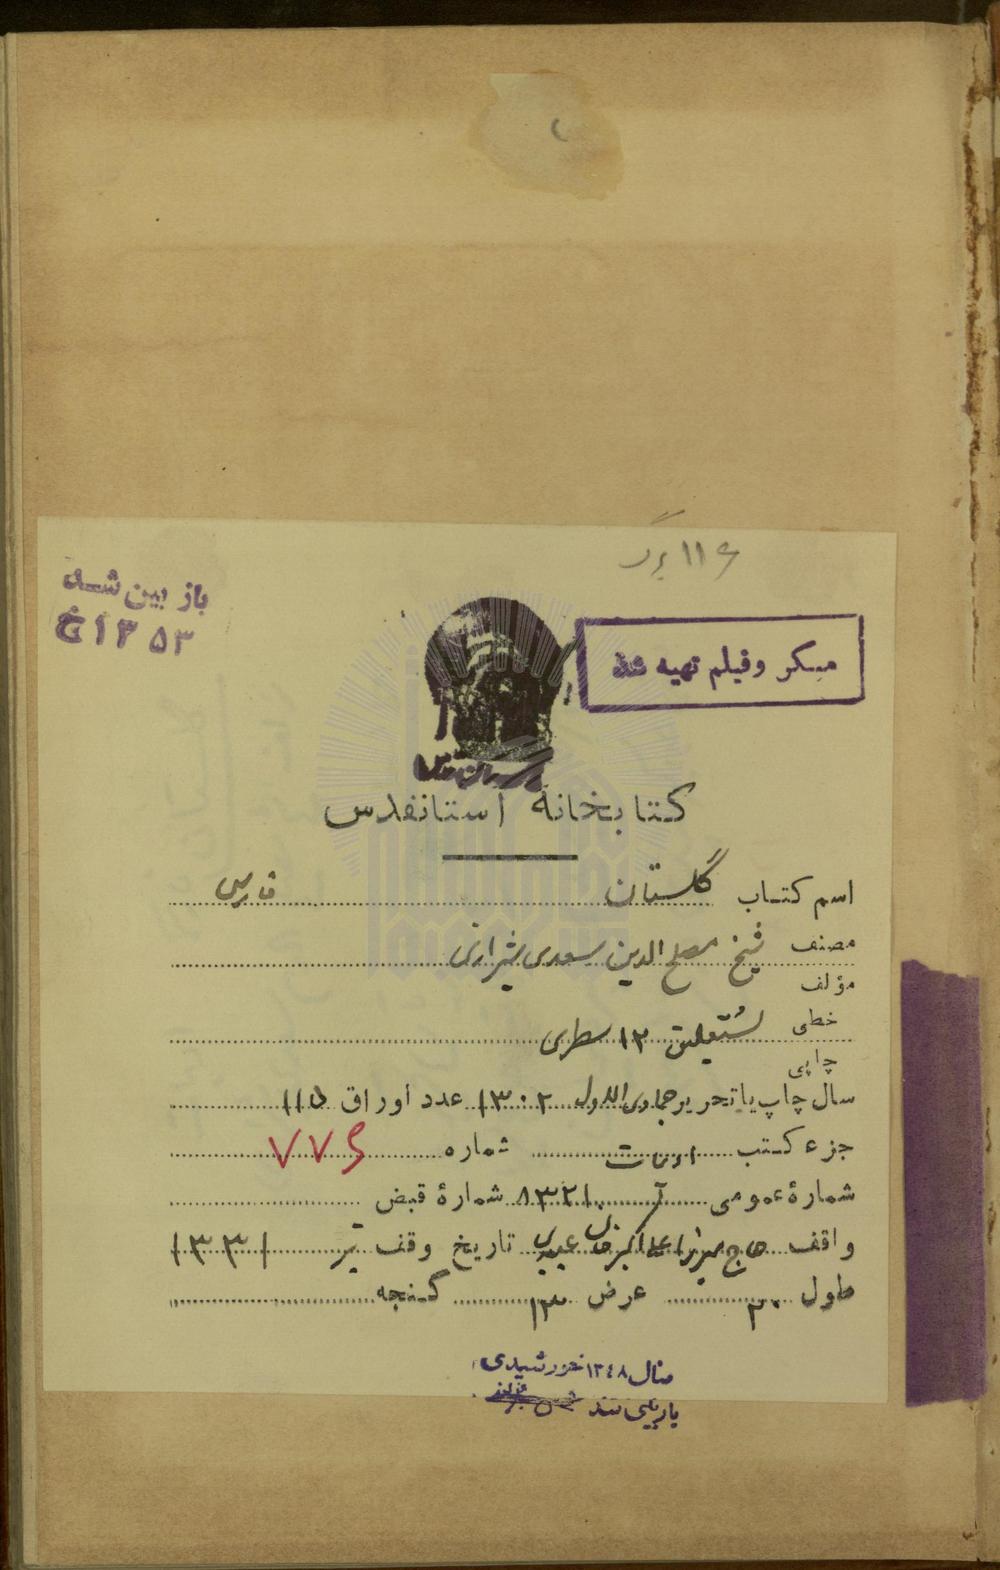 ۱۱۶ برگ
باز بین شد
۱۳۵۳
میکروفیلم تهیه شد
کتابخانهٔ آستانقدس
اسم کتاب گلستان فارسی
مصنف شیخ مصلح الدین سعدی شیرازی
مؤلف
خطی نستعلیق ۱۲ سطری
چاپی
سال چاپ یا تحریر جمادی الاول ۱۳۰۲ عدد اوراق ۱۱۵
جزء کتب ادبیات شماره ۷۷۶
شمارهٔ عمومی ۸۳۲۱ شمارهٔ قبض
واقف حاج میرزا علی اکبر خان عبیدی تاریخ وقف تیر ۱۳۳۱
طول ۲۰ عرض ۱۳ گنجه
سال ۱۳۴۸ خورشیدی
بازبینی شد